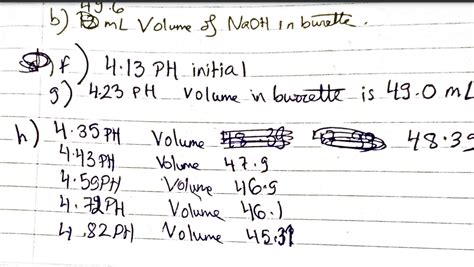 49.6
b) mL Volume of NaOH in burette.
f) 4.13 PH initial
g) 4.23 PH Volume in burette is 49.0 mL
h) 4.35 PH Volume 48.39
4.43 PH Volume 47.9
4.59 PH Volume 46.9
4.72 PH Volume 46.1
4.82 PH Volume 45.39